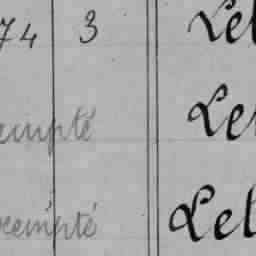 74 3 Let
empté Le
exempté Let